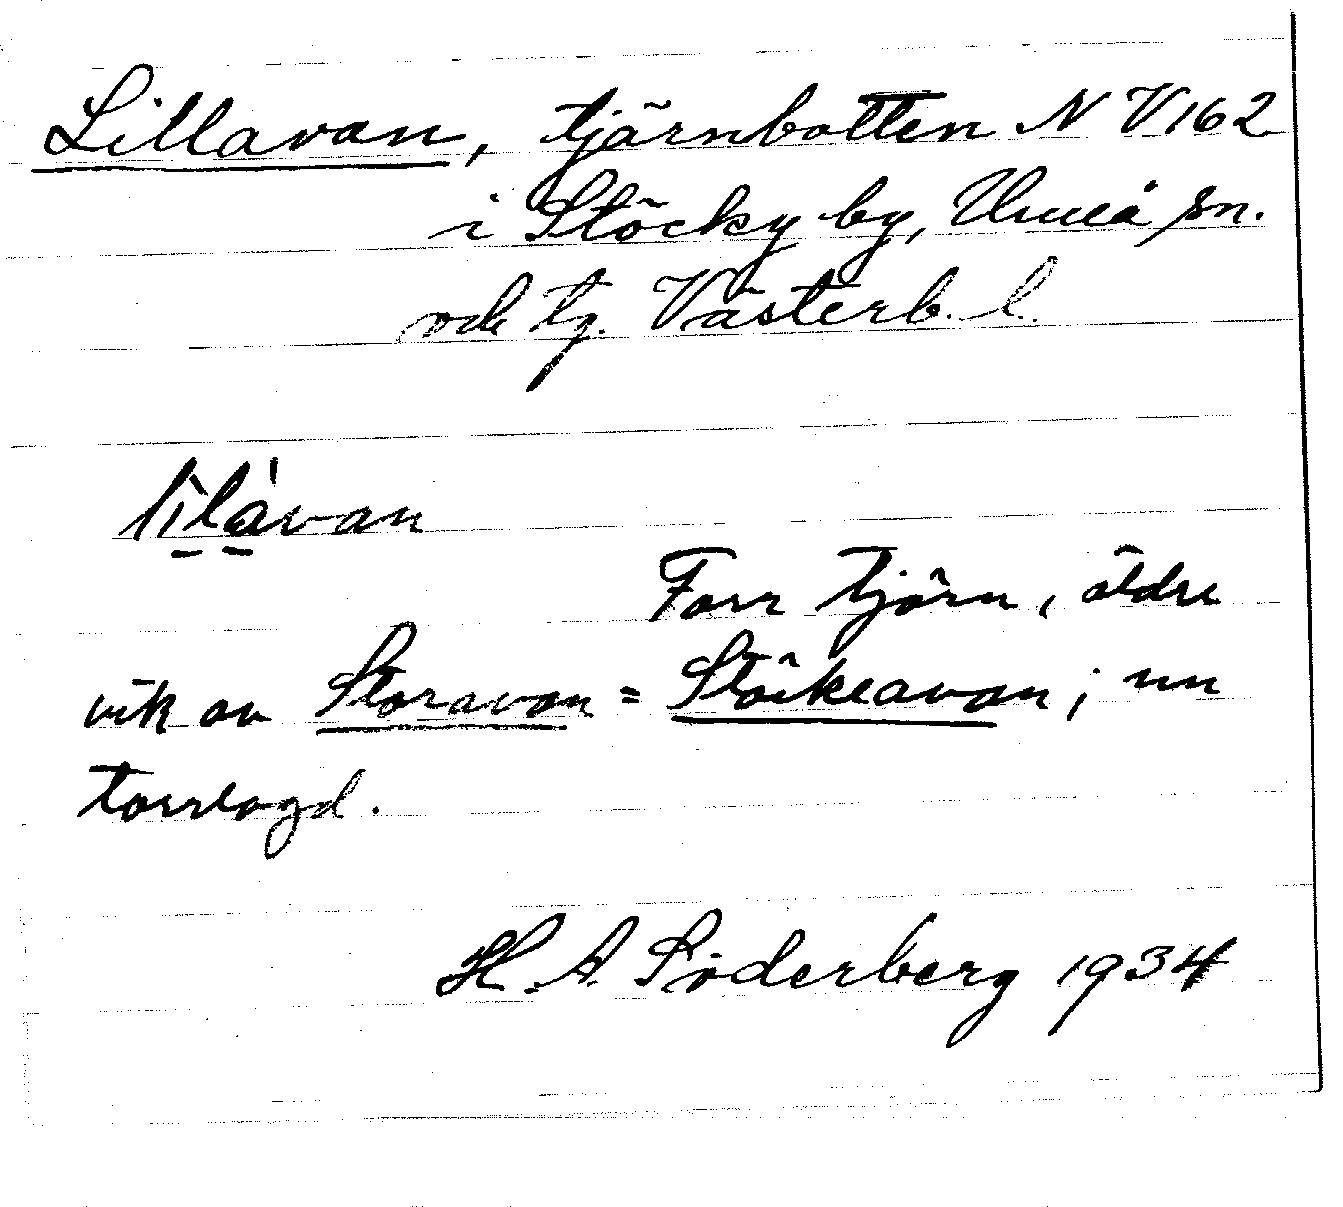 Lillavan, tjärnbotten N V162
i Stöcky by, Umeå sn.
och tg. Västerb. l.
lilàvan
Forr tjärn, äldre
vik av Storavan = Stöckeavan; nu
torrlagd.
H. A. Söderberg 1934